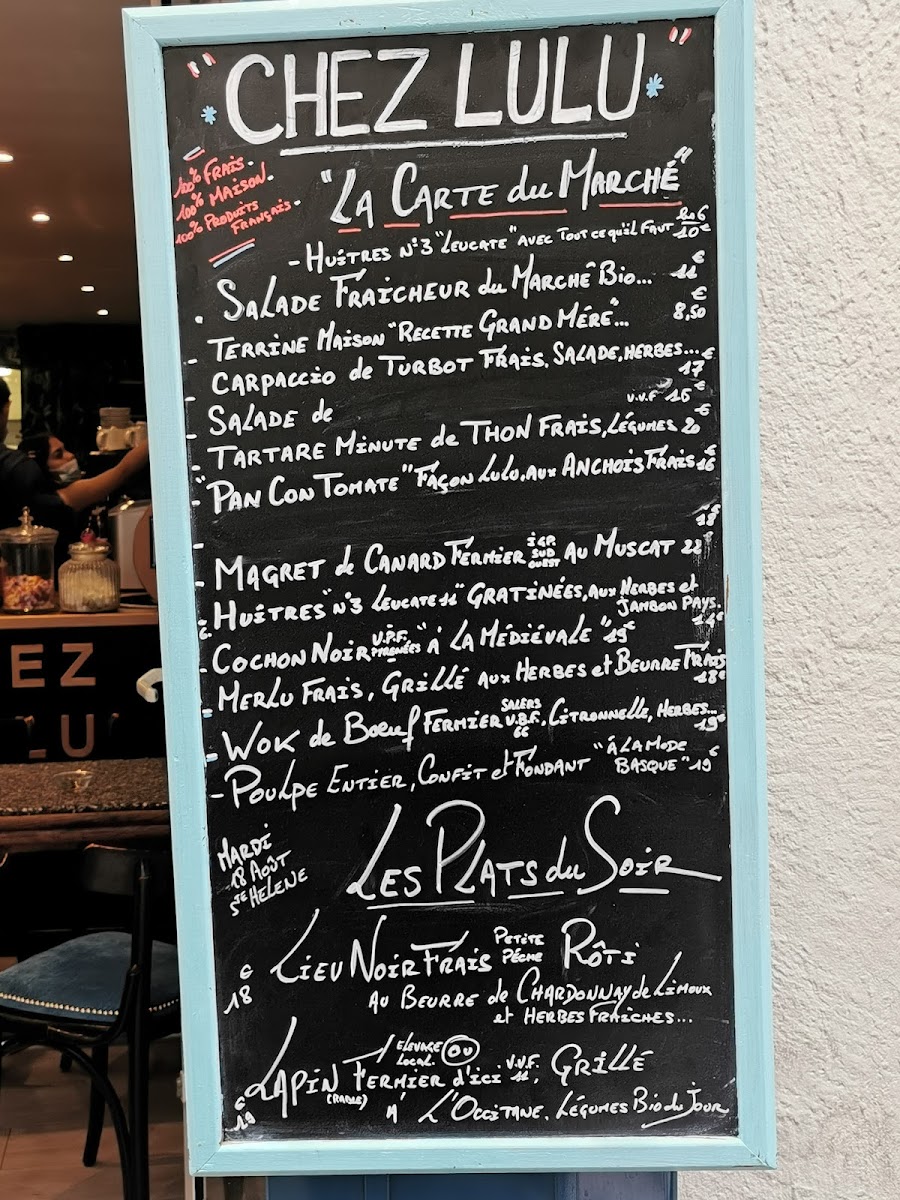 "CHEZ LULU"
100% FRAIS.
100% MAISON.
100% PRODUITS
FRANÇAIS.
"LA CARTE du MARCHÉ"
- HUÎTRES N°3 "LEUCATE" AVEC TOUT CE QU'IL FAUT
10€
SALADE FRAÎCHEUR du MARCHÉ BIO... 11€
- TERRINE MAISON "RECETTE GRAND MÉRE"... 8,50€
- CARPACCIO de TURBOT FRAIS, SALADE, HERBES... 17€
- SALADE de V.V.F
- TARTARE MINUTE de THON FRAIS, LÉGUMES 20€
- "PAN CON TOMATE" FAÇON LULU, AUX ANCHOIS FRAIS 16€
18€
- MAGRET de CANARD FERMIER IGP SUD OUEST AU MUSCAT 22€
- HUÎTRES "N°3 LEUCATE" GRATINÉES, AUX HERBES et
JAMBON PAYS. 14€
- COCHON NOIR V.P.F. PYRENÉES "À LA MÉDIÉVALE" 19€
- MERLU FRAIS, GRILLÉ AUX HERBES et BEURRE FRAIS
18€
- WOK de BOEUF FERMIER SALERS V.B.F., CITRONNELLE, HERBES... 19€
- POULPE ENTIER, CONFIT et FONDANT "À LA MODE
BASQUE" 19€
MARDI
18 AOÛT
STE HELENE
LES PLATS du SOIR
LIEU NOIR FRAIS PETITE PÊCHE RÔTI
18€
AU BEURRE de CHARDONNAY de LIMOUX
et HERBES FRAÎCHES...
LAPIN FERMIER d'ici ELEVAGE LOCAL OU V.V.F. 11, GRILLÉ
(RABLE)
19€
À L'OCCITANE, LÉGUMES BIO du JOUR
EZ
LU